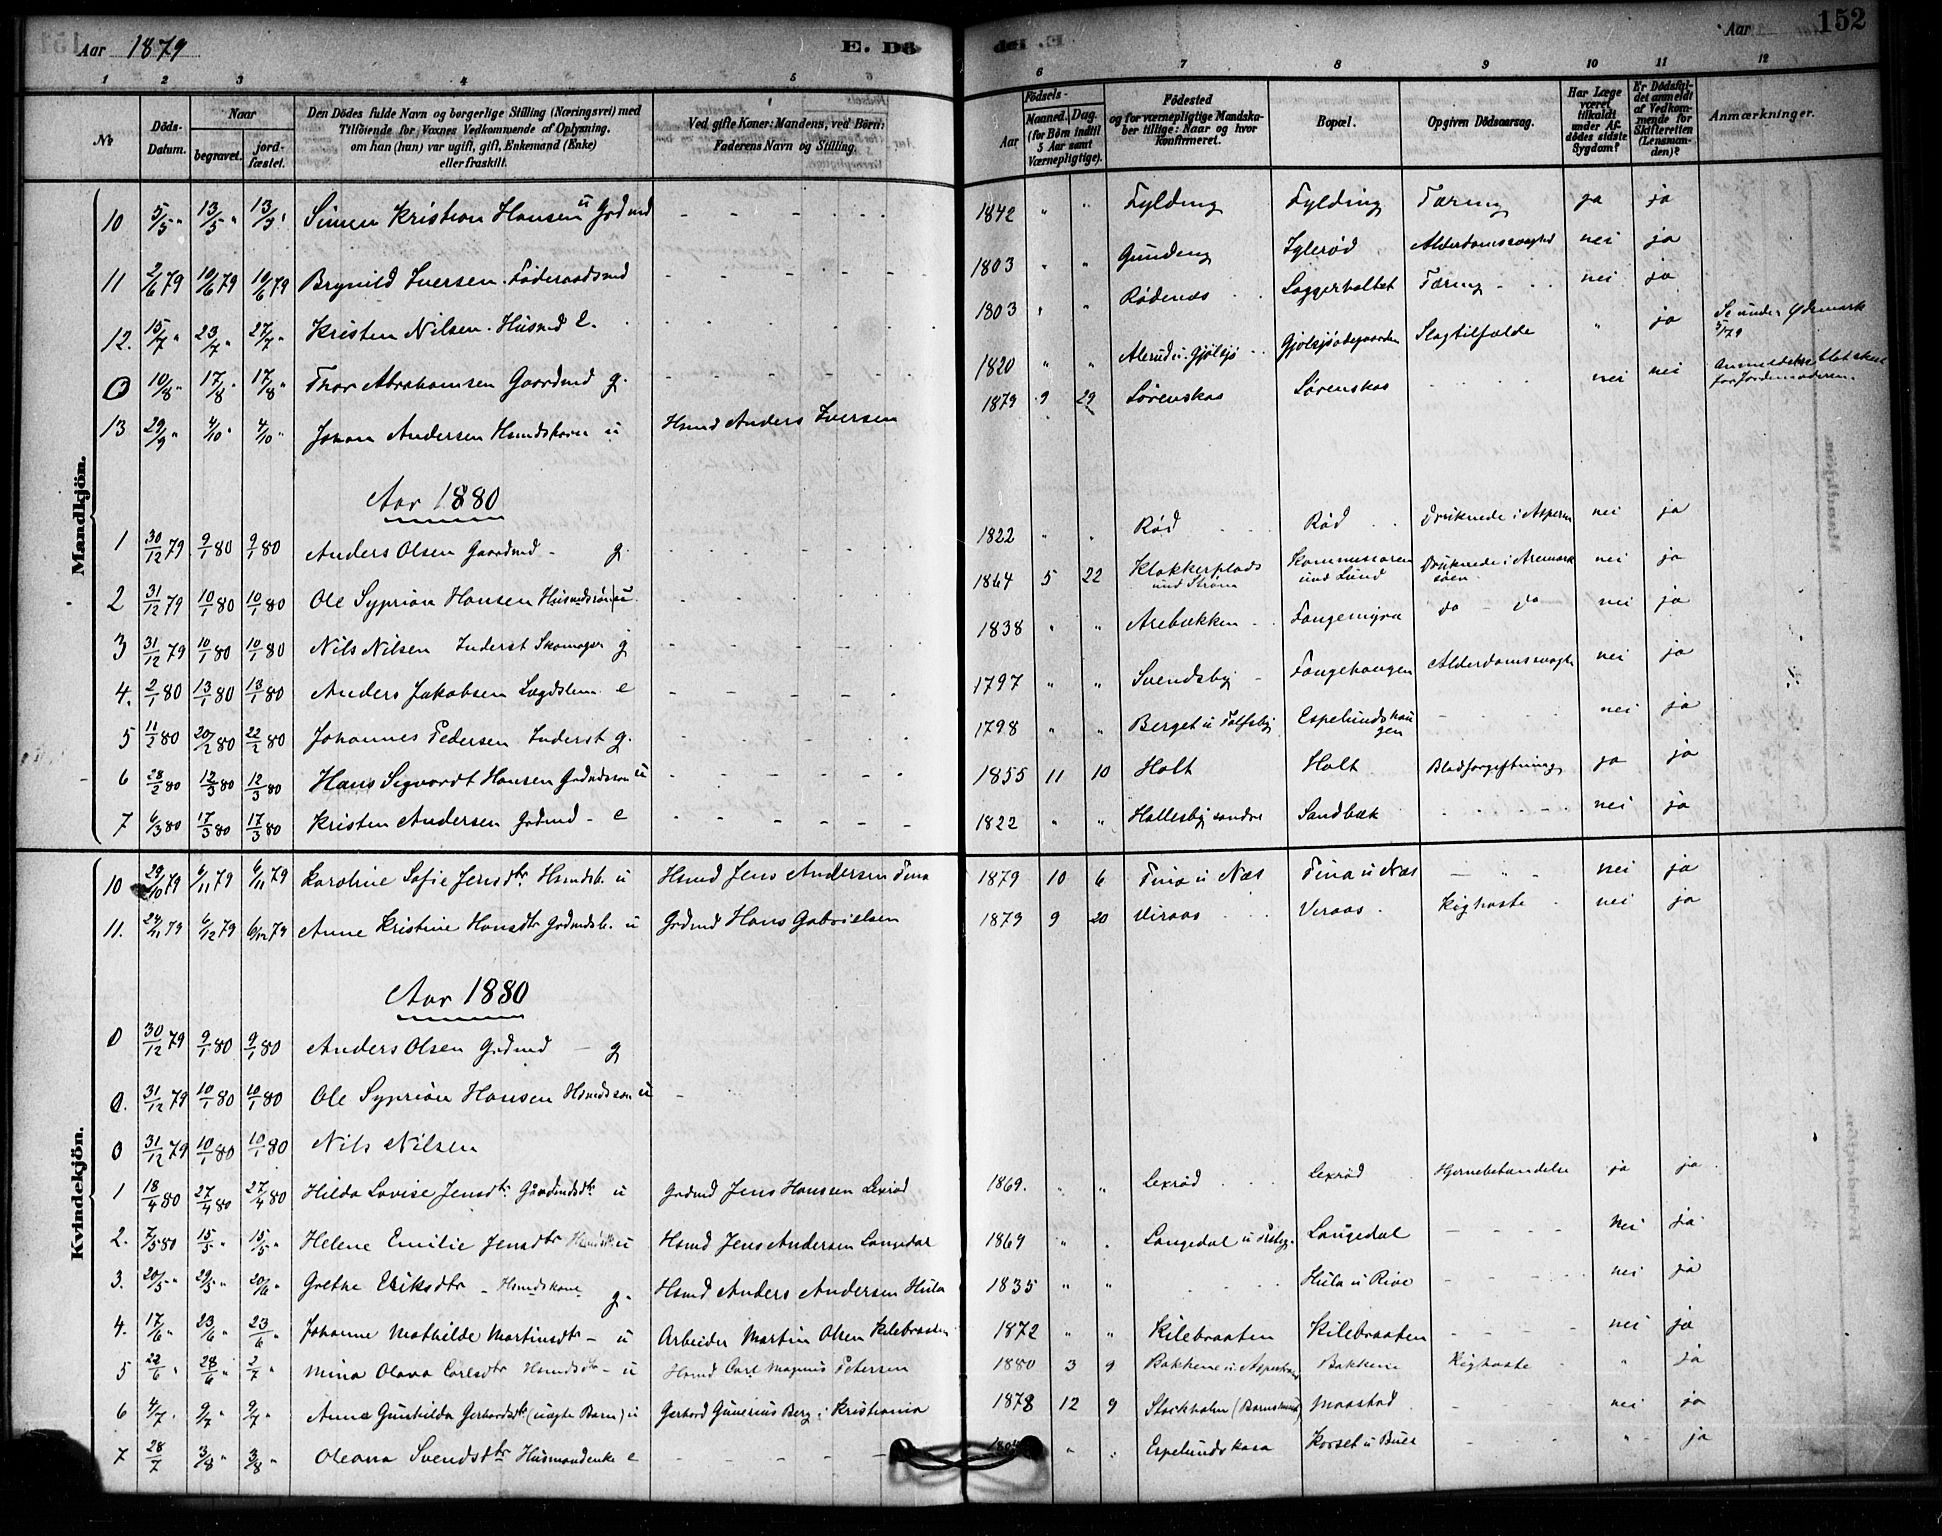 Aar 1879 E. Dö
Aar 152
1 2 3 4 5 6
6 7 8 9 10 11 12
№ Döds-Datum. Naar begravet. jord-fæstet. Den Dödes fulde Navn og borgerlige Stilling (Næringsvei) med Tilföiende for Voxnes Vedkommende af Oplysning, om han (hun) var ugift, gift, Enkemand (Enke) eller fraskilt. Ved gifte Koner: Mandens, ved Börn: Faderens Navn og Stilling.
Födsels- Aar Maaned. Dag. (for Börn indtil 5 Aar samt Værnepligtige). Födested og for værnepligtige Mandskaber tillige: Naar og hvor Konfirmeret. Bopæl. Opgiven Dödsaarsag. Har Læge været tilkaldt under Afdödes sidste Sygdom? Er Dödsfaldet anmeldt af Vedkommende for Skifteretten (Lensmanden)? Anmærkninger.
Mandkjön.
10 5/5 " 13/5 " 13/5 " Simen Kristian Hansen u Grdmd 1842 " " Fylding Fylding Tæring ja ja
11 2/6 79 10/6 79 10/6 79 Brynild Iversen Föderaadsmd 1803 " " Gundeng Iglerød Alderdomssvaghed nei ja
12. 15/7 " 23/7 " 27/7 " Kristen Nilsen Husmd e. 1803 " " Rødenæs Tæring nei ja
0 10/8 " 17/8 " 17/8 " Thor Abrahamsen Gaardmd g. 1820 " " Alerud u. Gjølsjø Gjølsjødegaarden Slagtilfælde " ja Se under Ødemark 5/79
13 29/9 " 4/10 " 4/10 " Johan Andersen Hsmdsbarn u Hsmd Anders Iversen 1879 9 29 Sørenskas Sørenskas nei nei Anmeldelse for Jordemoderen.
Aar 1880
1 30/12 79 9/1 80 9/1 80 Anders Olsen Gaardmd - g. 1822 " " Rød Rød Druknede i Aspern nei ja
2 31/12 79 10/1 80 10/1 80 Ole Syprian Hansen Husmdssøn u. 1864 5 22 Klokkerplads und Strøm Kommissæren und Lund Druknede i Aremark søen nei ja
3 31/12 79 10/1 80 10/1 80 Nils Nilsen Inderst Skomager g 1838 " " Arebækken Fangemyra do - do nei ja
4. 2/1 80 13/1 80 13/1 80 Anders Jakobsen Lægdslem e 1797 " " Svendsby Fangehaugen Alderdomssvaghe nei ja
5 11/2 80 20/2 80 22/2 80 Johannes Pedersen Inderst g. 1798 " " Berget u Folfsby Espelundshaugen nei ja
6 28/2 80 12/3 80 12/3 80 Hans Sigvardt Hansen Grdmdssøn u 1855 11 10 Holt Holt Blodforgiftning ja ja
7 6/3 80 17/3 80 17/3 80 Kristen Andersen Grdmd - e 1822 " " Hallesby søndre Sandbæk nei ja
Kvindekjön.
10 29/10 79 6/11 79 6/11 79 Karoline Sofie Jensdtr Hsmdsb. u Hsmd Jens Andersen Tina 1879 10 6 Tina u Næs Tina u Næs nei ja
11. 24/11 79 6/12 79 6/12 79 Anne Kristine Hansdtr Grdmdsb. u Grdmd Hans Gabrielsen 1879 9 20 Viraas Viraas Kighoste nei ja
Aar 1880
0 30/12 79 9/1 80 9/1 80 Anders Olsen Grdmd - g
0. 31/12 79 10/1 80 10/1 80 Ole Syprian Hansen Hsmdssøn u
0 31/12 79 10/1 80 10/1 80 Nils Nilsen
1 18/4 80 27/4 80 27/4 80 Hilda Lovise Jensdtr Gaardmdsdtr u Grdmd Jens Hanssen Lexrød 1869. " " Lexrød Lexrød Hjernebetændelse ja ja
2. 7/5 80 15/5 " 15/5 " Helene Emilie Jensdtr u Hsmd Jens Andersen Langedal 1869 " " Langedal u Langedal nei ja
3. 20/5 " 29/5 " 20/6 " Grethe Eriksdtr - Hsmdskone g. Hsmd Anders Andersen Hula 1835 " " Hula u Rive nei ja
4. 17/6 " 23/6 " 23/6 " Johanne Mathilde Martinsdtr - u Arbeider Martin Olsen Kilebraaten 1872 " " Kilebraaten Kilebraaten nei ja
5 22/6 " 28/6 " 2/7 " Mina Olava Carlsdtr Hsmdsdtr - u Hsmd Carl Magnus Petersen 1880 3 9 Bakkene u Bakkene Kighoste " ja
6 4/7 " 9/7 " 9/7 " Anna Gunhilda Gerhardsdtr (uægte Barn) u Gerhard Gunerius Berg i Kristiania 1878 12 9 Stockholm Maastad nei ja
7 28/7 3/8 " 3/8 " Oleana Svendsdtr Husmandenke e " " Espelundskasa Korset u Buer " ja